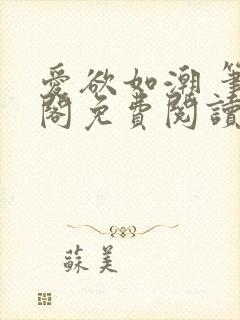 愛欲如潮 筆
閣免費閱讀
蘇美